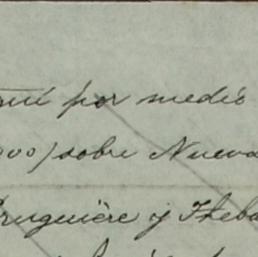 por medio
000) sobre Nueva
ruguière y Theba